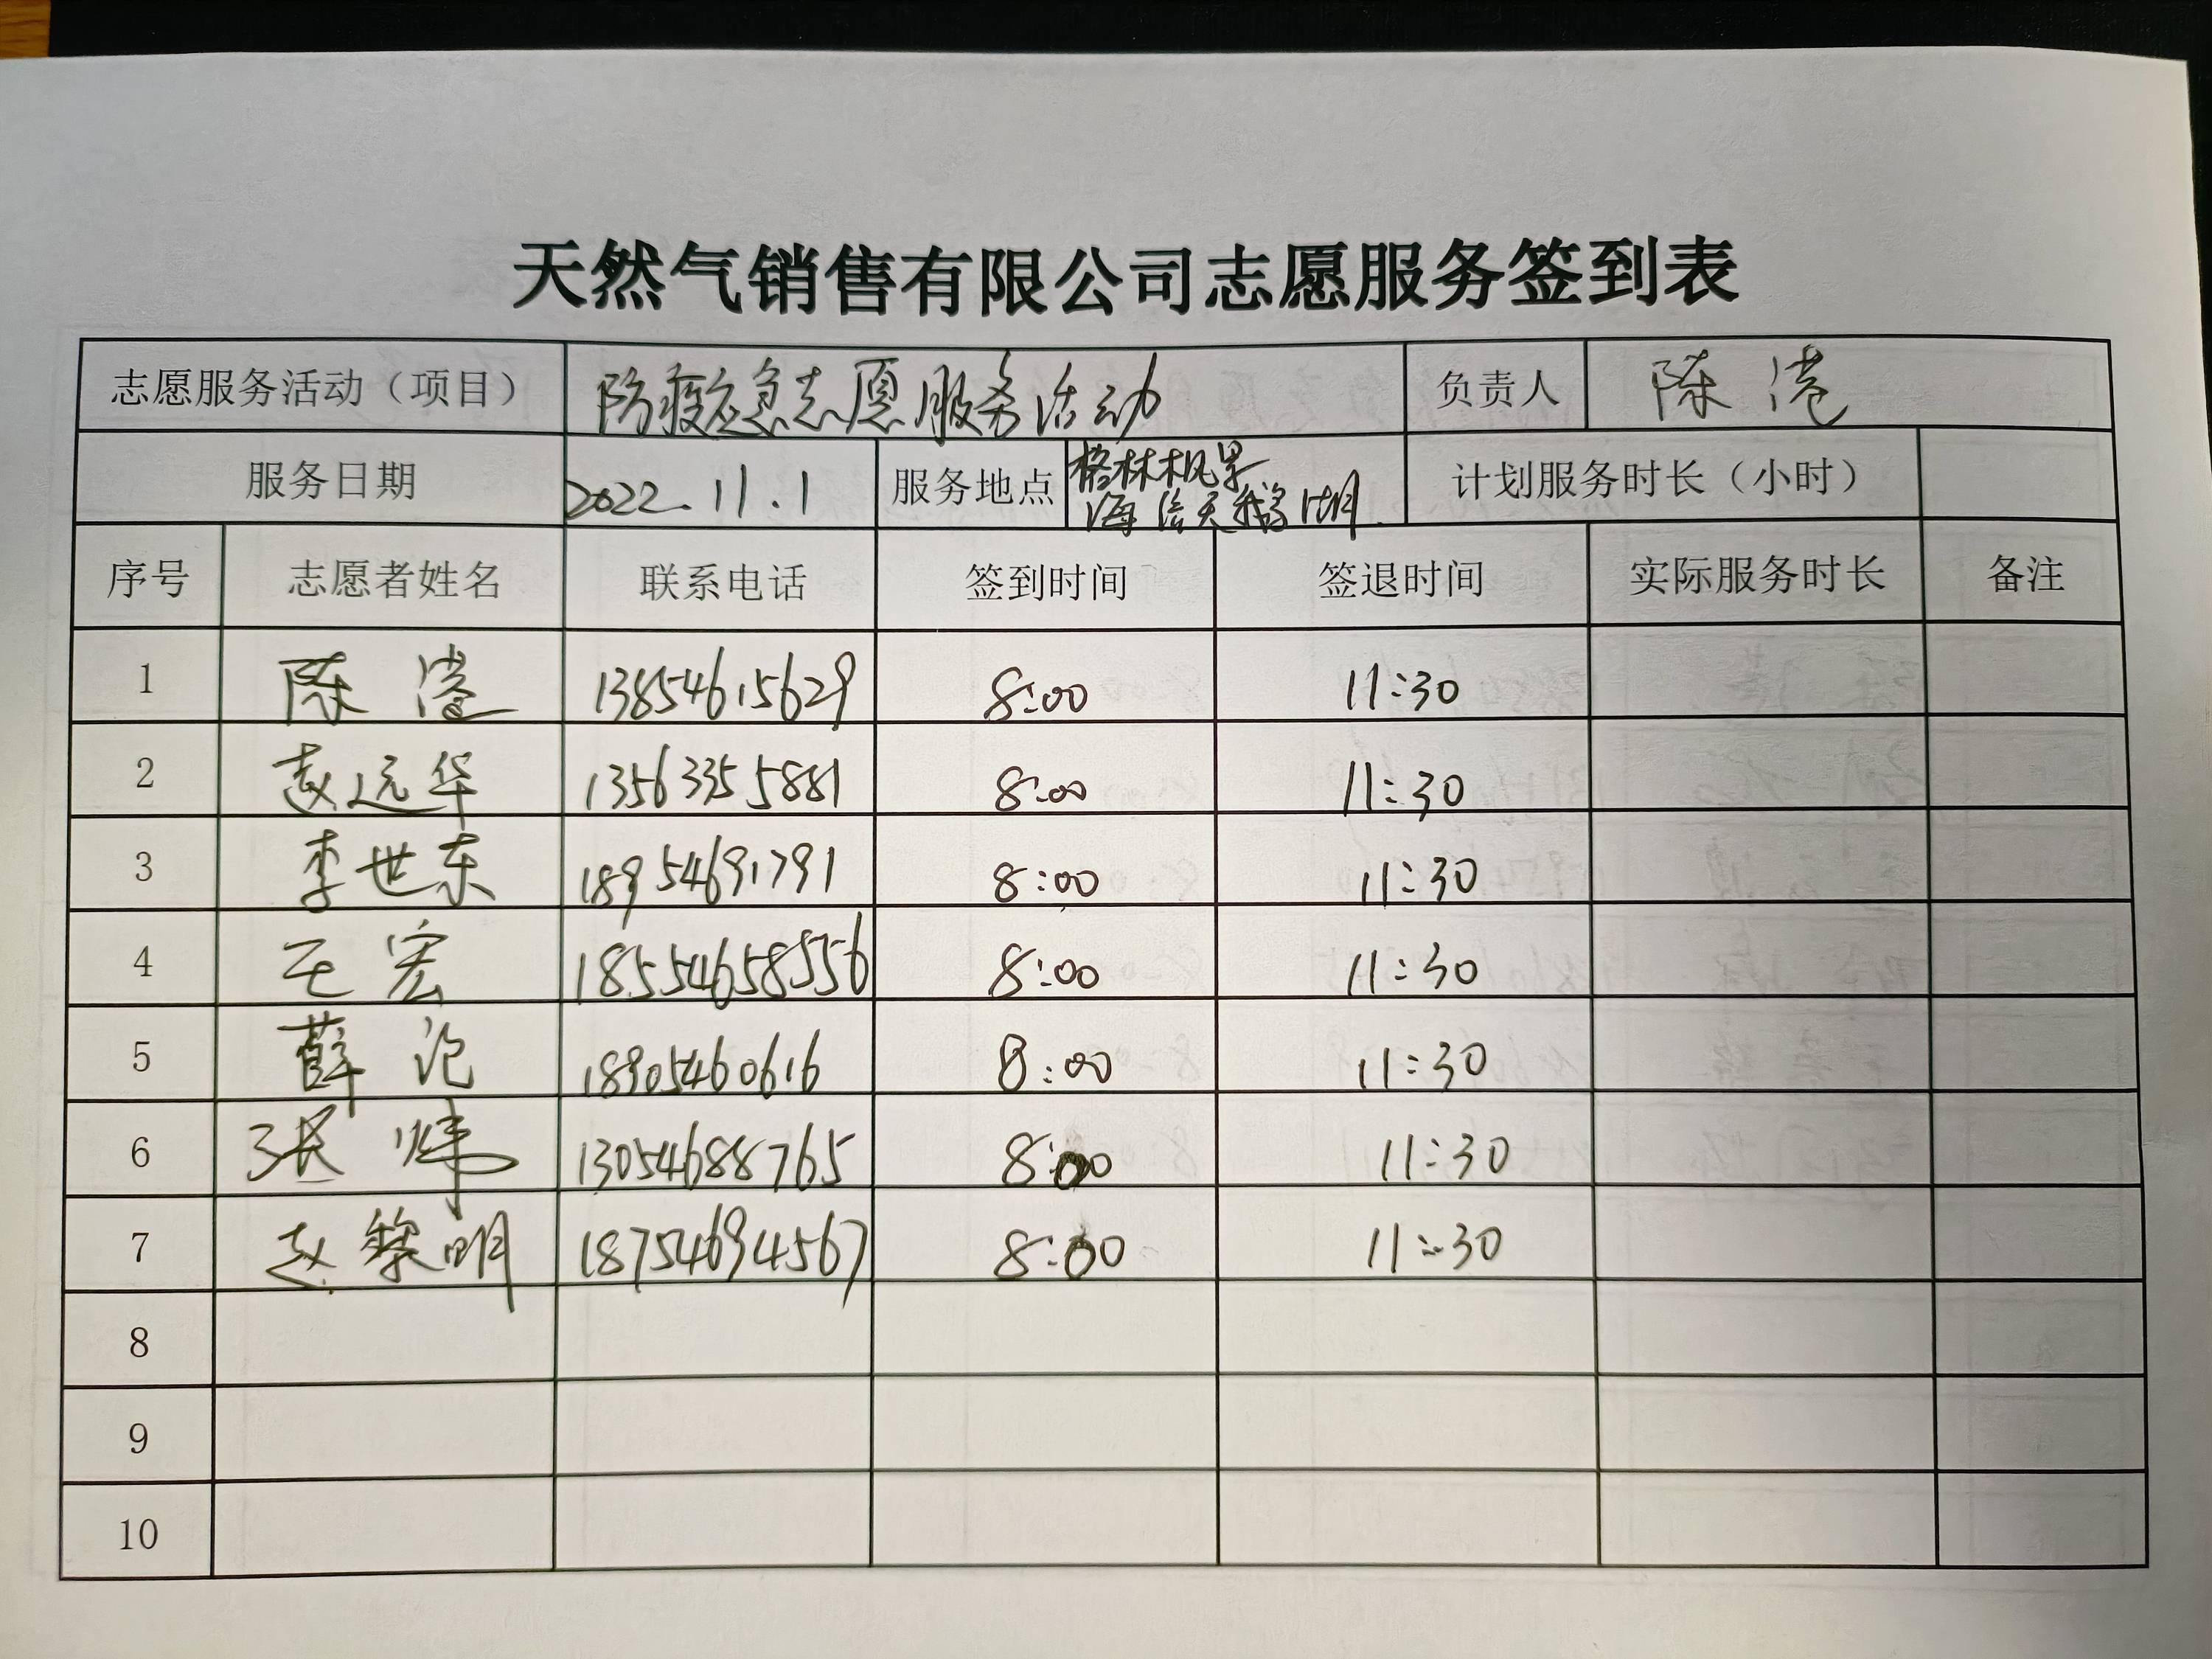 天然气销售有限公司志愿服务签到表
志愿服务活动（项目） 防疫应急志愿服务活动 负责人 陈港
服务日期 2022.11.1 服务地点 格林枫景 海信天鹅湖 计划服务时长（小时）
序号 志愿者姓名 联系电话 签到时间 签退时间 实际服务时长 备注
1 陈港 13854615629 8:00 11:30
2 赵远华 13563355881 8:00 11:30
3 李世东 18954691791 8:00 11:30
4 王宏 18554658556 8:00 11:30
5 薛 18905460616 8:00 11:30
6 张炜 13054688765 8:00 11:30
7 赵黎明 18754694567 8:00 11:30
8
9
10